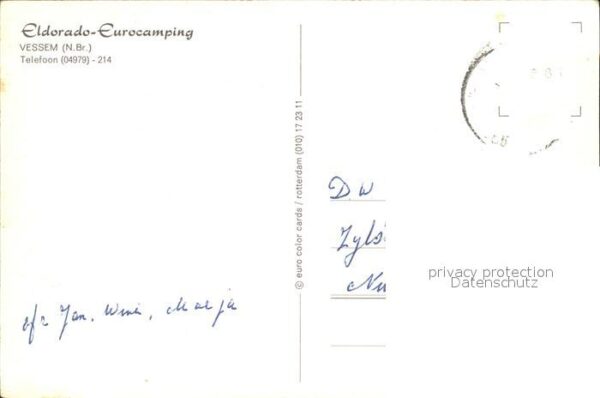 Eldorado-Eurocamping
VESSEM (N.Br.)
Telefoon (04979) - 214
© euro color cards / rotterdam (010) 17 23 11
D.W
Zyls
Nu
privacy protection
Datenschutz
afz Jan. Wimi, Marja